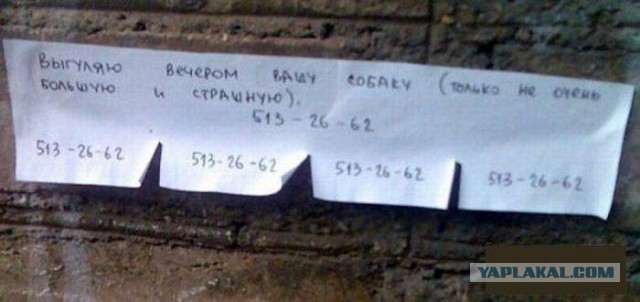 Выгуляю вечером вашу собаку (только не очень
большую и страшную).
513-26-62
513-26-62 513-26-62 513-26-62 513-26-62
YAPLAKAL.COM